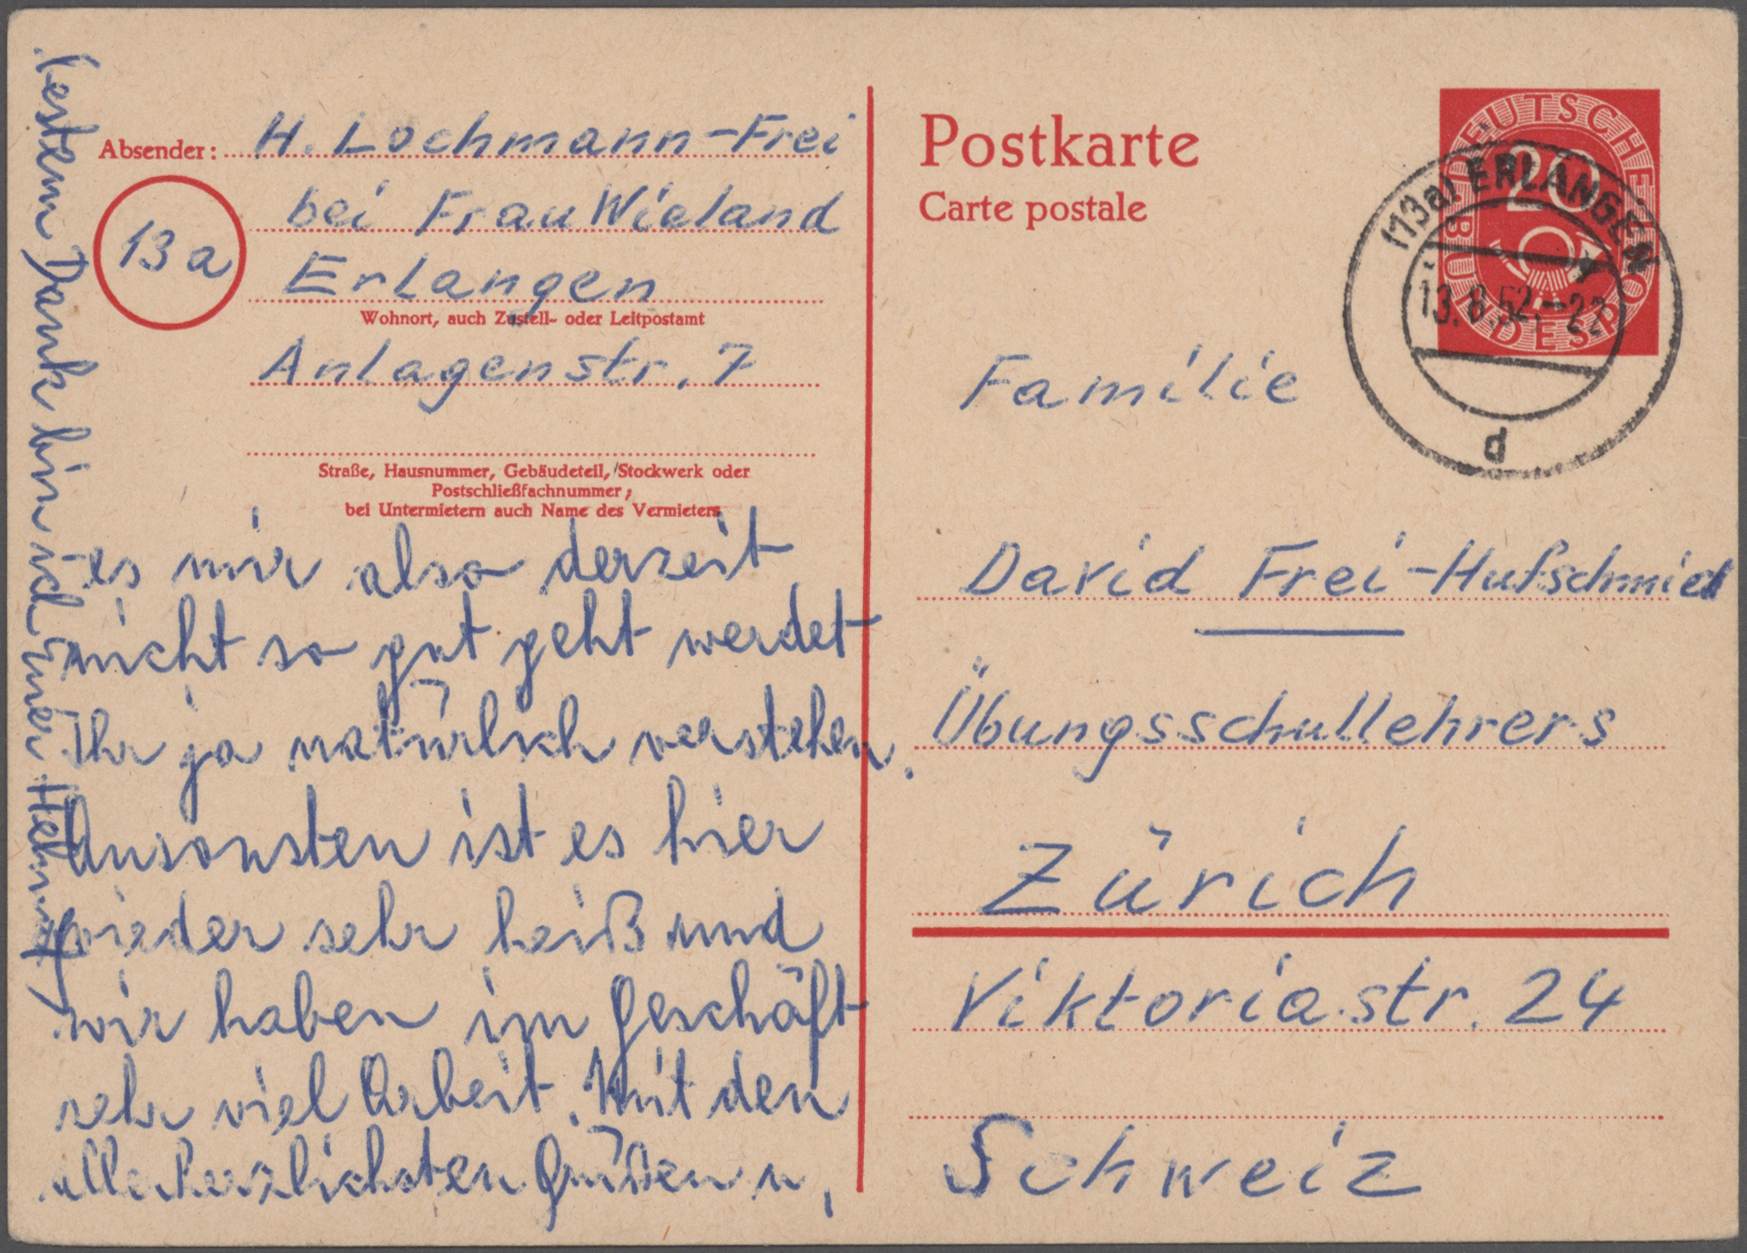 Absender: H. Lochmann-Frei
bei Frau Wieland
13a
Erlangen
Wohnort, auch Zustell- oder Leitpostamt
Anlagenstr. 7
Straße, Hausnummer, Gebäudeteil, Stockwerk oder
Postschließfachnummer;
bei Untermietern auch Name des Vermieters
es mir also derzeit
nicht so gut geht werdet
Ihr ja natürlich verstehen.
Ansonsten ist es hier
wieder sehr heiß und
wir haben im Geschäft
sehr viel Arbeit. Mit den
allerherzlichsten Grüßen u.
bestem Dank bin ich Euer Helmut
Postkarte
Carte postale
DEUTSCHE BUNDESPOST
20
(13a) ERLANGEN
13.8.52.-22
d
Familie
David Frei-Hufschmied
Übungsschullehrers
Zürich
Viktoriastr. 24
Schweiz